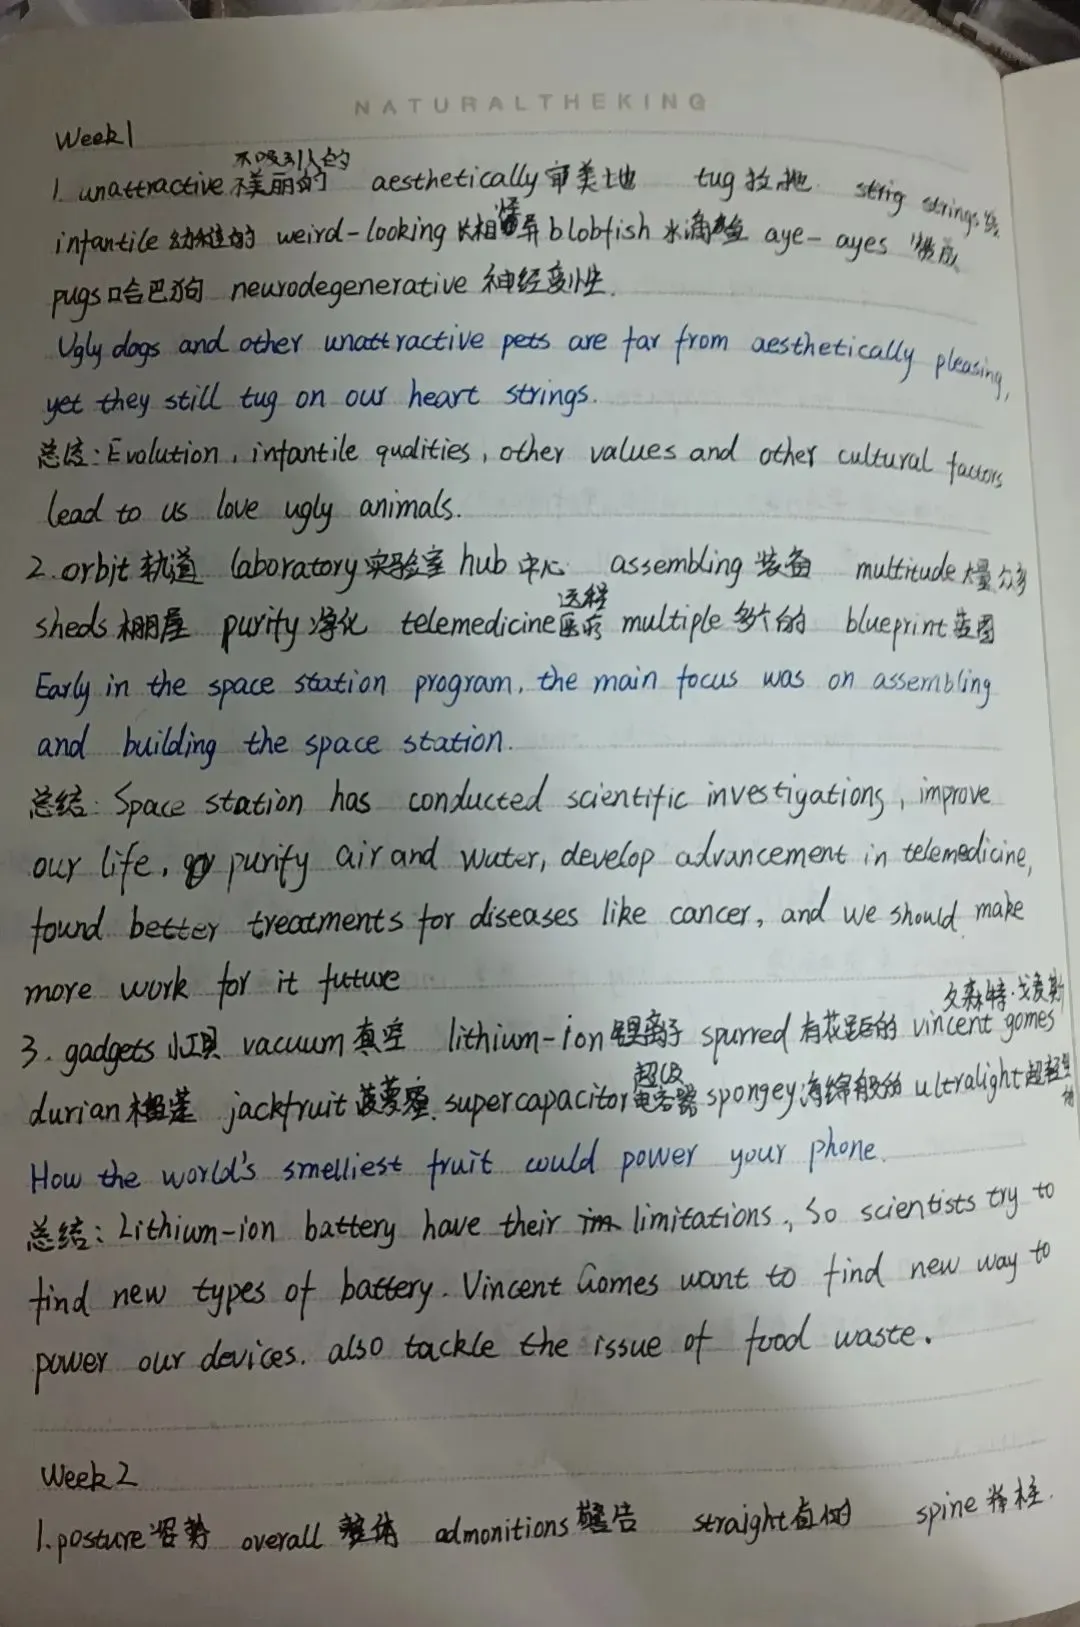 NATURALTHEKING
Week1
不吸引人的
1. unattractive 不美丽的 aesthetically 审美地 tug 拉,拖 strig strings 线
infantile 幼稚的 weird-looking 长相怪异 blobfish 水滴鱼 aye-ayes
pugs 哈巴狗 neurodegenerative 神经变性
Ugly dogs and other unattractive pets are far from aesthetically pleasing,
yet they still tug on our heart strings.
总结: Evolution, infantile qualities, other values and other cultural factors
lead to us love ugly animals.
2. orbit 轨道 laboratory 实验室 hub 中心 assembling 装备 multitude 大量 众多
sheds 棚屋 purity 净化 telemedicine 远程医疗 multiple 多个的 blueprint 蓝图
Early in the space station program, the main focus was on assembling
and building the space station.
总结: Space station has conducted scientific investigations, improve
our life, purify air and water, develop advancement in telemedicine,
found better treatments for diseases like cancer, and we should make
more work for it future
文森特·戈麦斯
3. gadgets 小工具 vacuum 真空 lithium-ion 锂离子 spurred 有花距的 vincent gomes
durian 榴莲 jackfruit 菠萝蜜 supercapacitor 超级电容器 spongey 海绵般的 ultralight 超轻型的
How the world's smelliest fruit could power your phone.
总结: Lithium-ion battery have their im limitations, So scientists try to
find new types of battery. Vincent Gomes want to find new way to
power our devices. also tackle the issue of food waste.
Week 2
1. posture 姿势 overall 整体 admonitions 警告 straight 直的 spine 脊柱.